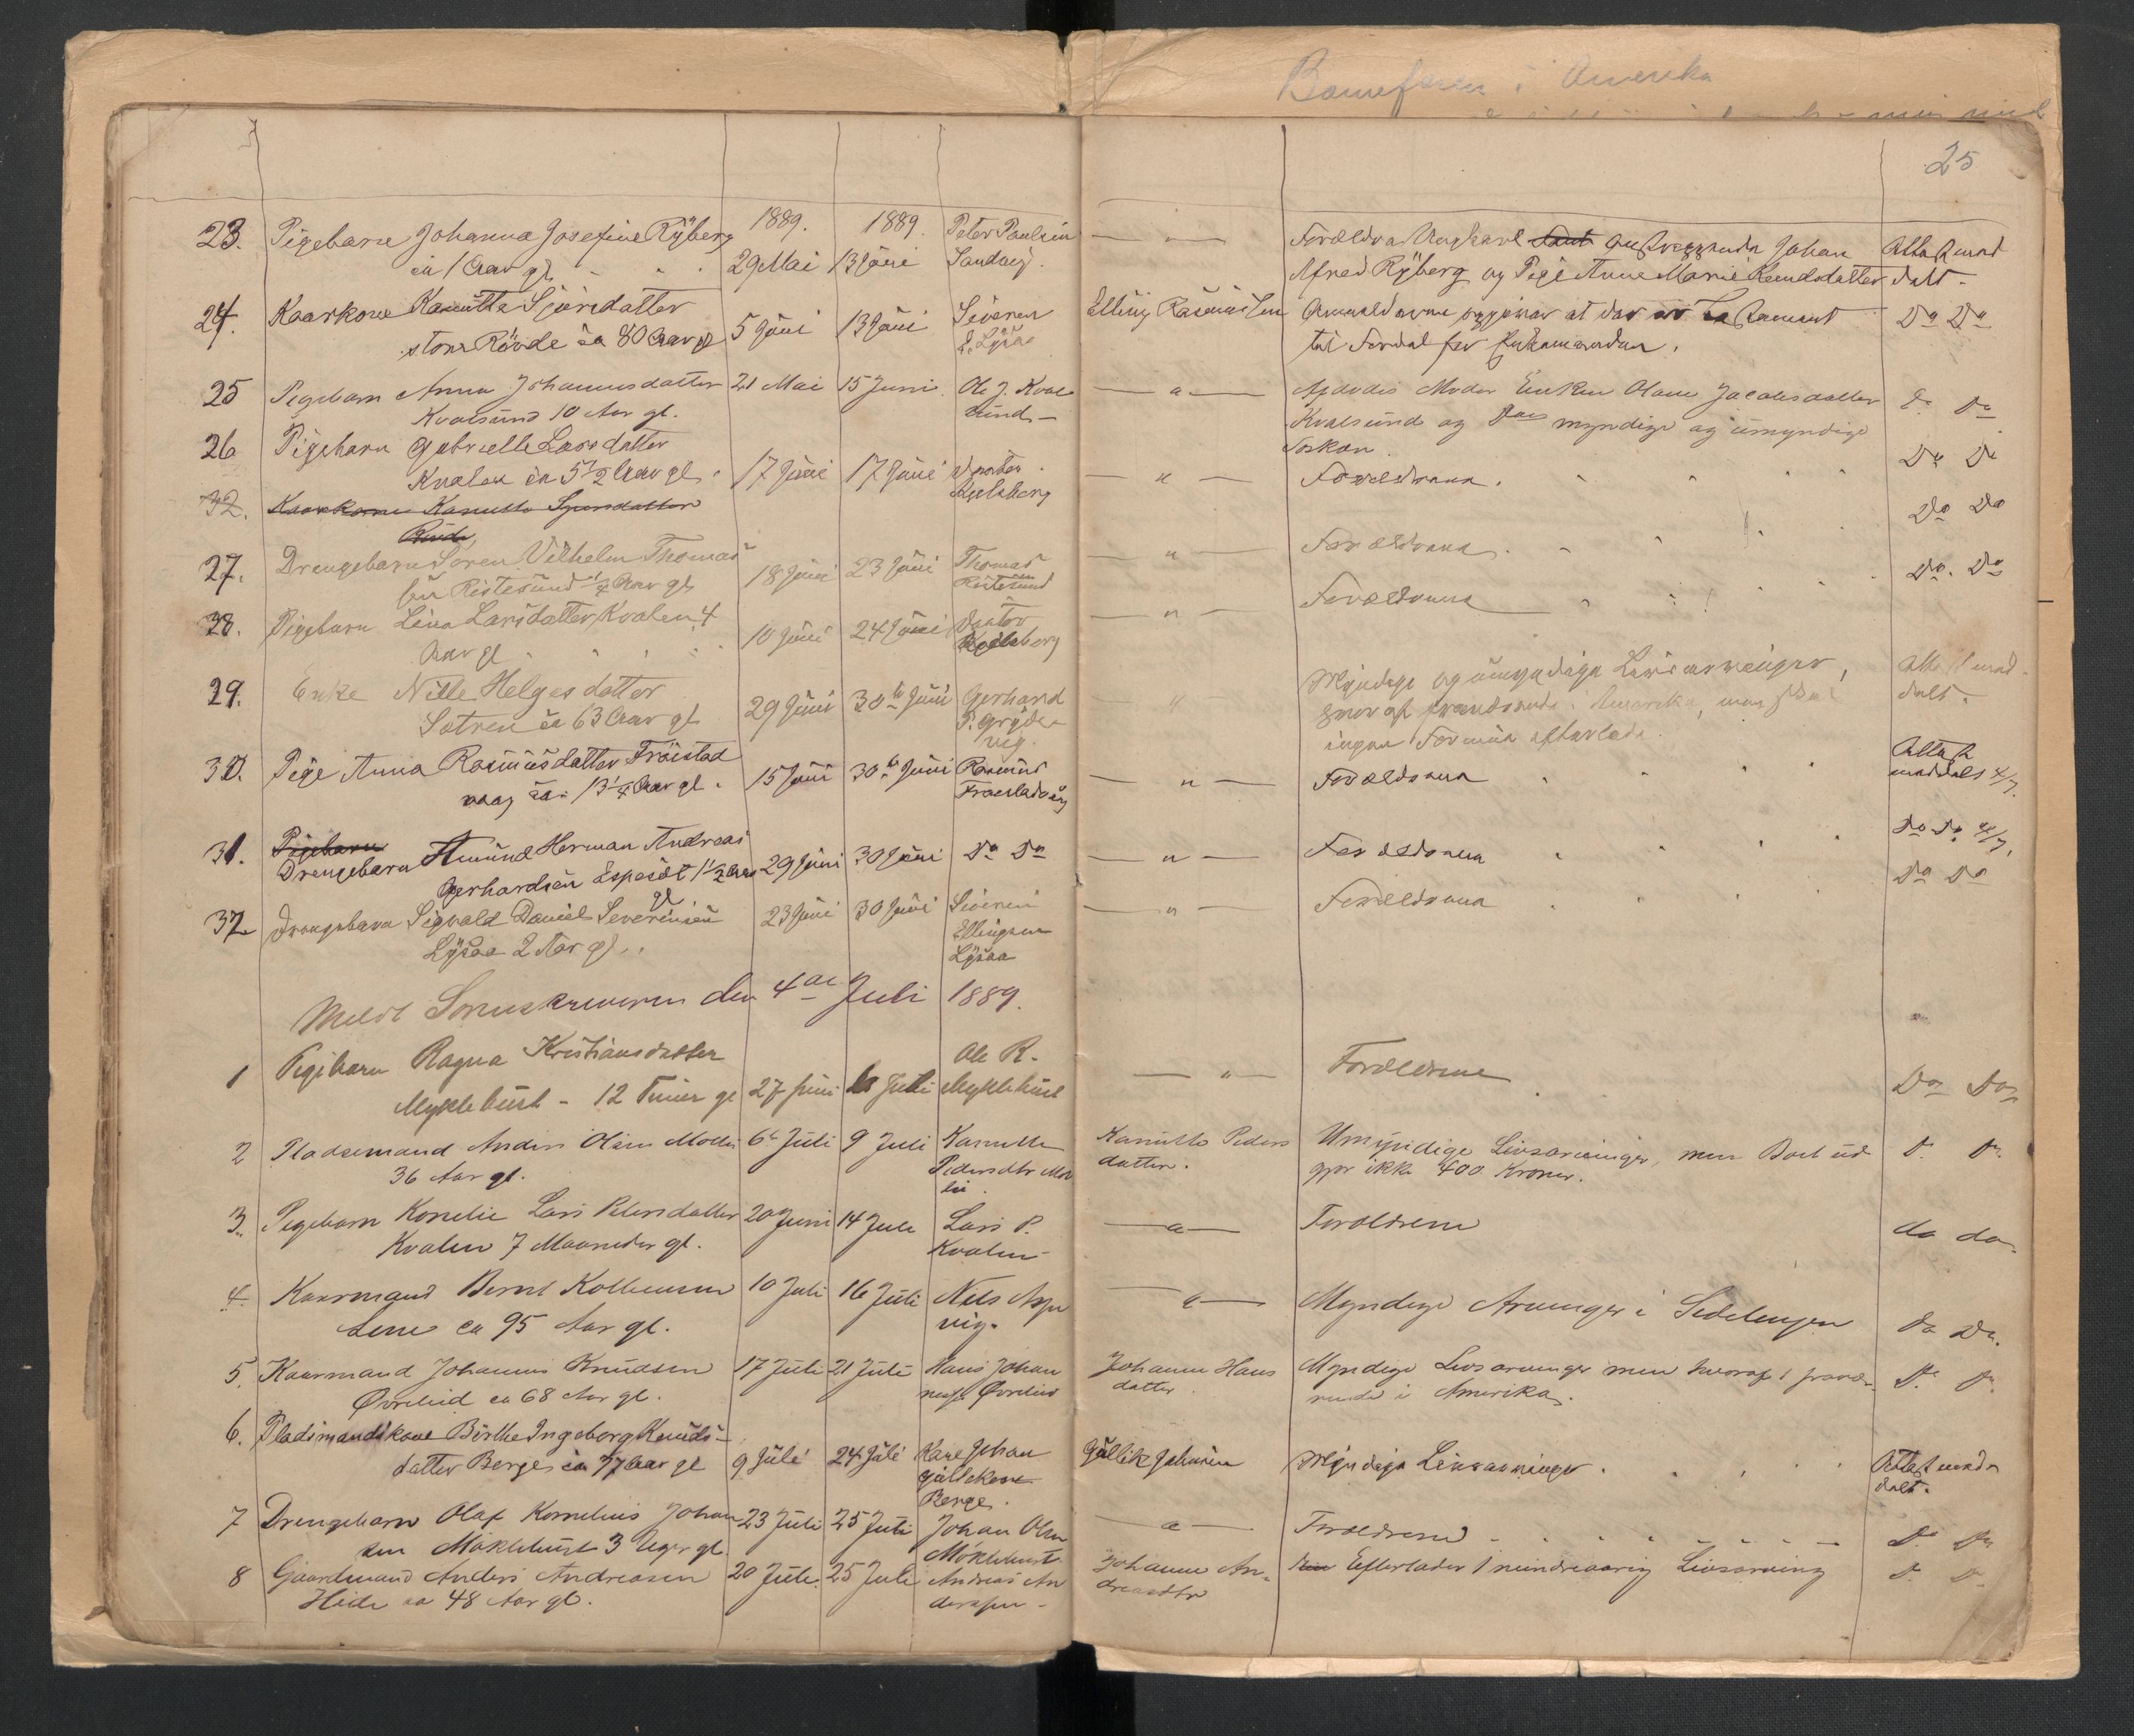 Barnefaren i Amerika
25
23. Pigebarn Johanna Josefine Ryberg 1889. 1889. Peter Paulsen — " — Forældre Ungkarl Johan Attest med
ca 1 Aar gl. 29 Mai 13 Juni Sandvig. Alfred Ryberg og Pige Anne Marie Knudsdatter delt.
24. Kaarkone Kanutte Sjursdatter 5 Juni 13 Juni Severen Elling Rasmussen at der er Testament Do Do
store Rövde ca 80 Aar gl E. Lysaa til Fordel for
25 Pigebarn Anna Johannesdatter 21 Mai 15 Juni Ole J. Kval — " — Afdødes Moder Enken Olane Jacobsdatter Do Do
Kvalsund 10 Aar gl. sund — Kvalsund og myndige og umyndige
Søsken.
26 Pigebarn Gabrielle Larsdatter
Kvalen ca 5 1/2 Aar gl. 17 Juni 17 Juni Kjelsberg — " — Forældrene. Do Do
32. Kaarkone Kanutte Sjursdatter
Røvde
27. Drengebarn Søren Vilhelm Thomas 18 Juni 23 Juni Thomas — " — Forældrene. Do Do
sen Ristesund 1/4 Aar gl Ristesund
28. Pigebarn Lina Larsdatter Kvalen 4 10 Juni 24 Juni Kjelsberg — " — Forældrene Do. Do
Aar gl
29. Enke Nille Helgesdatter 29 Juni 30te Juni Gerhard " Myndige og umyndige Livsarvinger, Attest med
Sætren ca 63 Aar gl P. Gryde- i Amerika, delt.
vig. ingen Formue efterlade.
30. Pige Anna Rasmusdatter Fröistad 15 Juni 30te Juni Rasmus — " — Forældrene Attest
vaag ca 13 1/4 Aar gl. Froestadvåg meddelt 4/7.
31. Pigebarn
Drengebarn Amund Herman Andreas 29 Juni 30 Juni Do Do — " — Forældrene Do Do 4/7.
Gerhardsen Espesæt 1 1/2 Aar
gl
32 Drengebarn Sigvald Daniel Severinsen 23 Juni 30 Juni Severin — " — Forældrene Do Do
Lysaa 2 Aar gl.. Ellingsen
Lysaa
Meldt Sorenskriveren den 4de Juli 1889.
1 Pigebarn Ragna Kristiansdatter Ole R. — " — Forældrene Do Do
Myklebust - 12 Timer gl 27 Juni Juli Myklebust
2 Pladsemand Anders Olsen Mollu 6te Juli 9 Juli Kanutte Kanutte Peders Umyndige Livsarvinger, men Boet ud D. Do
36 Aar gl. Pedersdtr datter. gjør ikke 400 Kroner.
3. Pigebarn Kornelie Lars Petersdatter 20 Juni 14 Juli Lars P. — " — Forældrene do do
Kvalen 7 Maaneder gl. Kvalen —
4. Kaarmand Bernt Kolbensen 10 Juli 16 Juli Nils Asp — " — Myndige Arvinger i Sedelengen Do Do.
ca 95 Aar gl. vig.
5. Kaarmand Johannes Knudsen 17 Juli 21 Juli Hans Johan Johanne Hans Myndige Livsarvinger men hvoraf 1 fravæ- Do Do
Øvreliid ca 68 Aar gl. nessen Øvreliid datter rende i Amerika.
6. Pladsmandskone Birthe Ingeborg Knuds-
datter Berge ca 77 Aar gl 9 Juli 24 Juli Karl Johan Gullik Johnsen Myndige Livsarvinger. Attest med
Gulliksen delt.
Berge.
7 Drengebarn Olaf Kornelius Johan 23 Juli 25 Juli Johan Olsen — " — Forældrene Do Do
sen Möklebust 3 Uger gl. Möklebust
8 Gaardmand Anders Andreasen 20 Juli. 25 Juli Andreas An Johanne An- Efterlader 1 mindreaarig Livsarving D. D.
Heide ca 48 Aar gl. dersen - dreasdtr